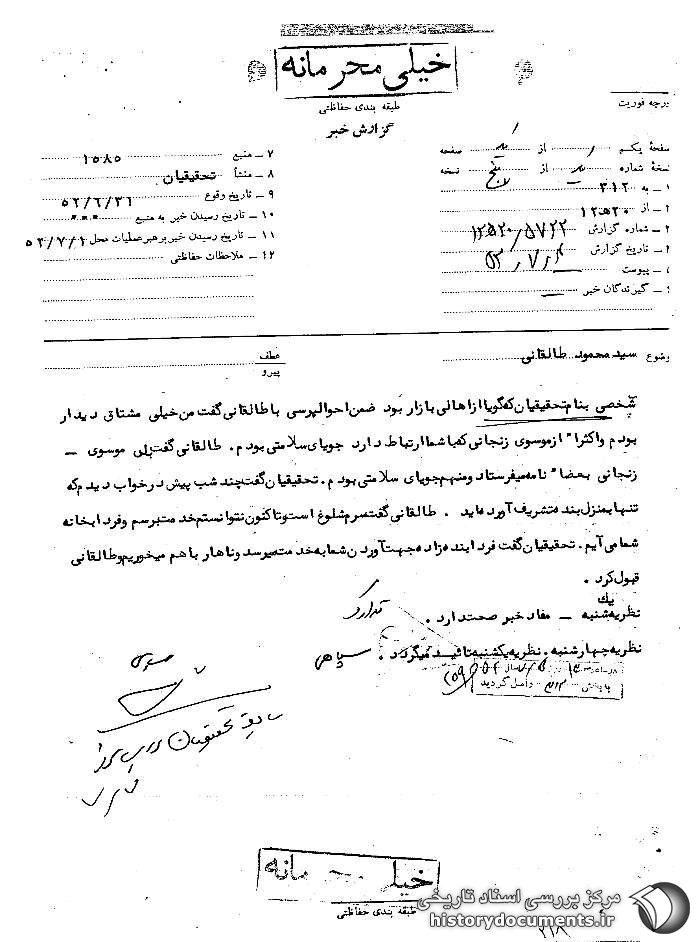 خیلی محرمانه
طبقه بندی حفاظتی
گزارش خبر
درجه فوریت
صفحه یکم از صفحه
نسخه شماره از پنج نسخه
۱ – به ۳۱۲
۲ – از ۲۰ ه ۱۲
۳ – شماره گزارش ۱۲۵۲۰/۵۷۲۲
۴ – تاریخ گزارش
۵ – پیوست
۶ – گیرندگان خبر
۷ – منبع ۱۵۸۵
۸ – منشأ تحقیقیان
۹ – تاریخ وقوع ۵۲/۶/۳۱
۱۰ – تاریخ رسیدن خبر به منبع ...
۱۱ – تاریخ رسیدن خبر برهبر عملیات محل ۵۲/۷/۱
۱۲ – ملاحظات حفاظتی
موضوع سید محمود طالقانی
عطف
پیرو
شخصی بنام تحقیقیان که گویا از اهالی بازار بود ضمن احوالپرسی با طالقانی گفت من خیلی مشتاق دیدار
بودم و اکثراً از موسوی زنجانی که با شما ارتباط دارد جویای سلامتی بودم . طالقانی گفت بلی موسوی –
زنجانی بعضاً نامه میفرستاد و منهم جویای سلامتی بودم . تحقیقیان گفت چند شب پیش در خواب دیدم که
تنها بمنزل بنده تشریف آورده اید . طالقانی گفت سرم شلوغ است و تا کنون نتوانستم خدمت برسم و فردا بخانه
شما می آیم . تحقیقیان گفت فردا بنده زاده جهت آوردن شما به خدمت میرسد و ناهار با هم میخوریم و طالقانی
قبول کرد .
نظریه یک شنبه – مفاد خبر صحت دارد .
نظریه چهارشنبه . نظریه یکشنبه تائید میگردد . سپاهی
به بخش ۳۱۲ واصل گردید
سابقه تحقیقیان
خیلی محرمانه
طبقه بندی حفاظتی
مرکز بررسی اسناد تاریخی
historydocuments.ir
۲۱۸